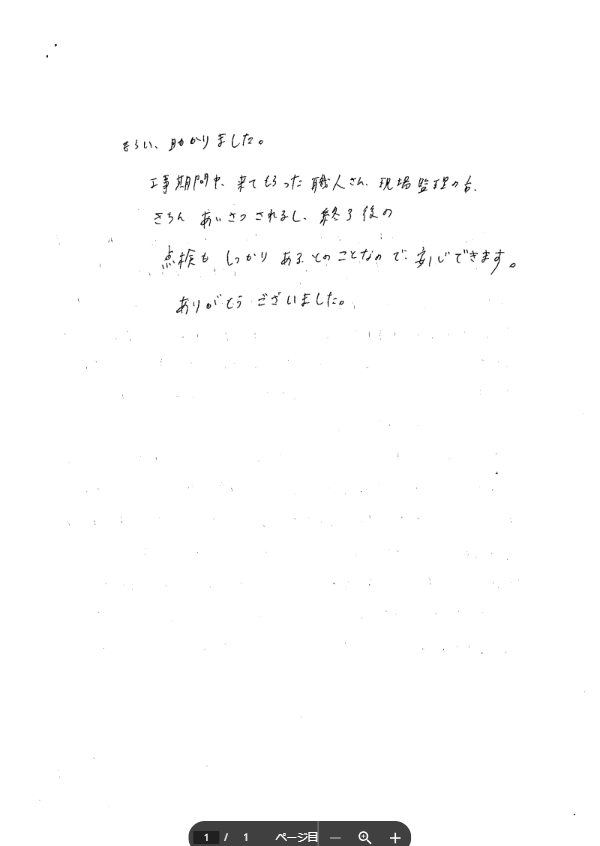 もらい、助かりました。
工事期間中、来てもらった職人さん、現場監理の方、
きちんとあいさつされるし、終了後の
点検もしっかりあるとのことなので、安心できます。
ありがとうございました。
1 / 1 ページ目